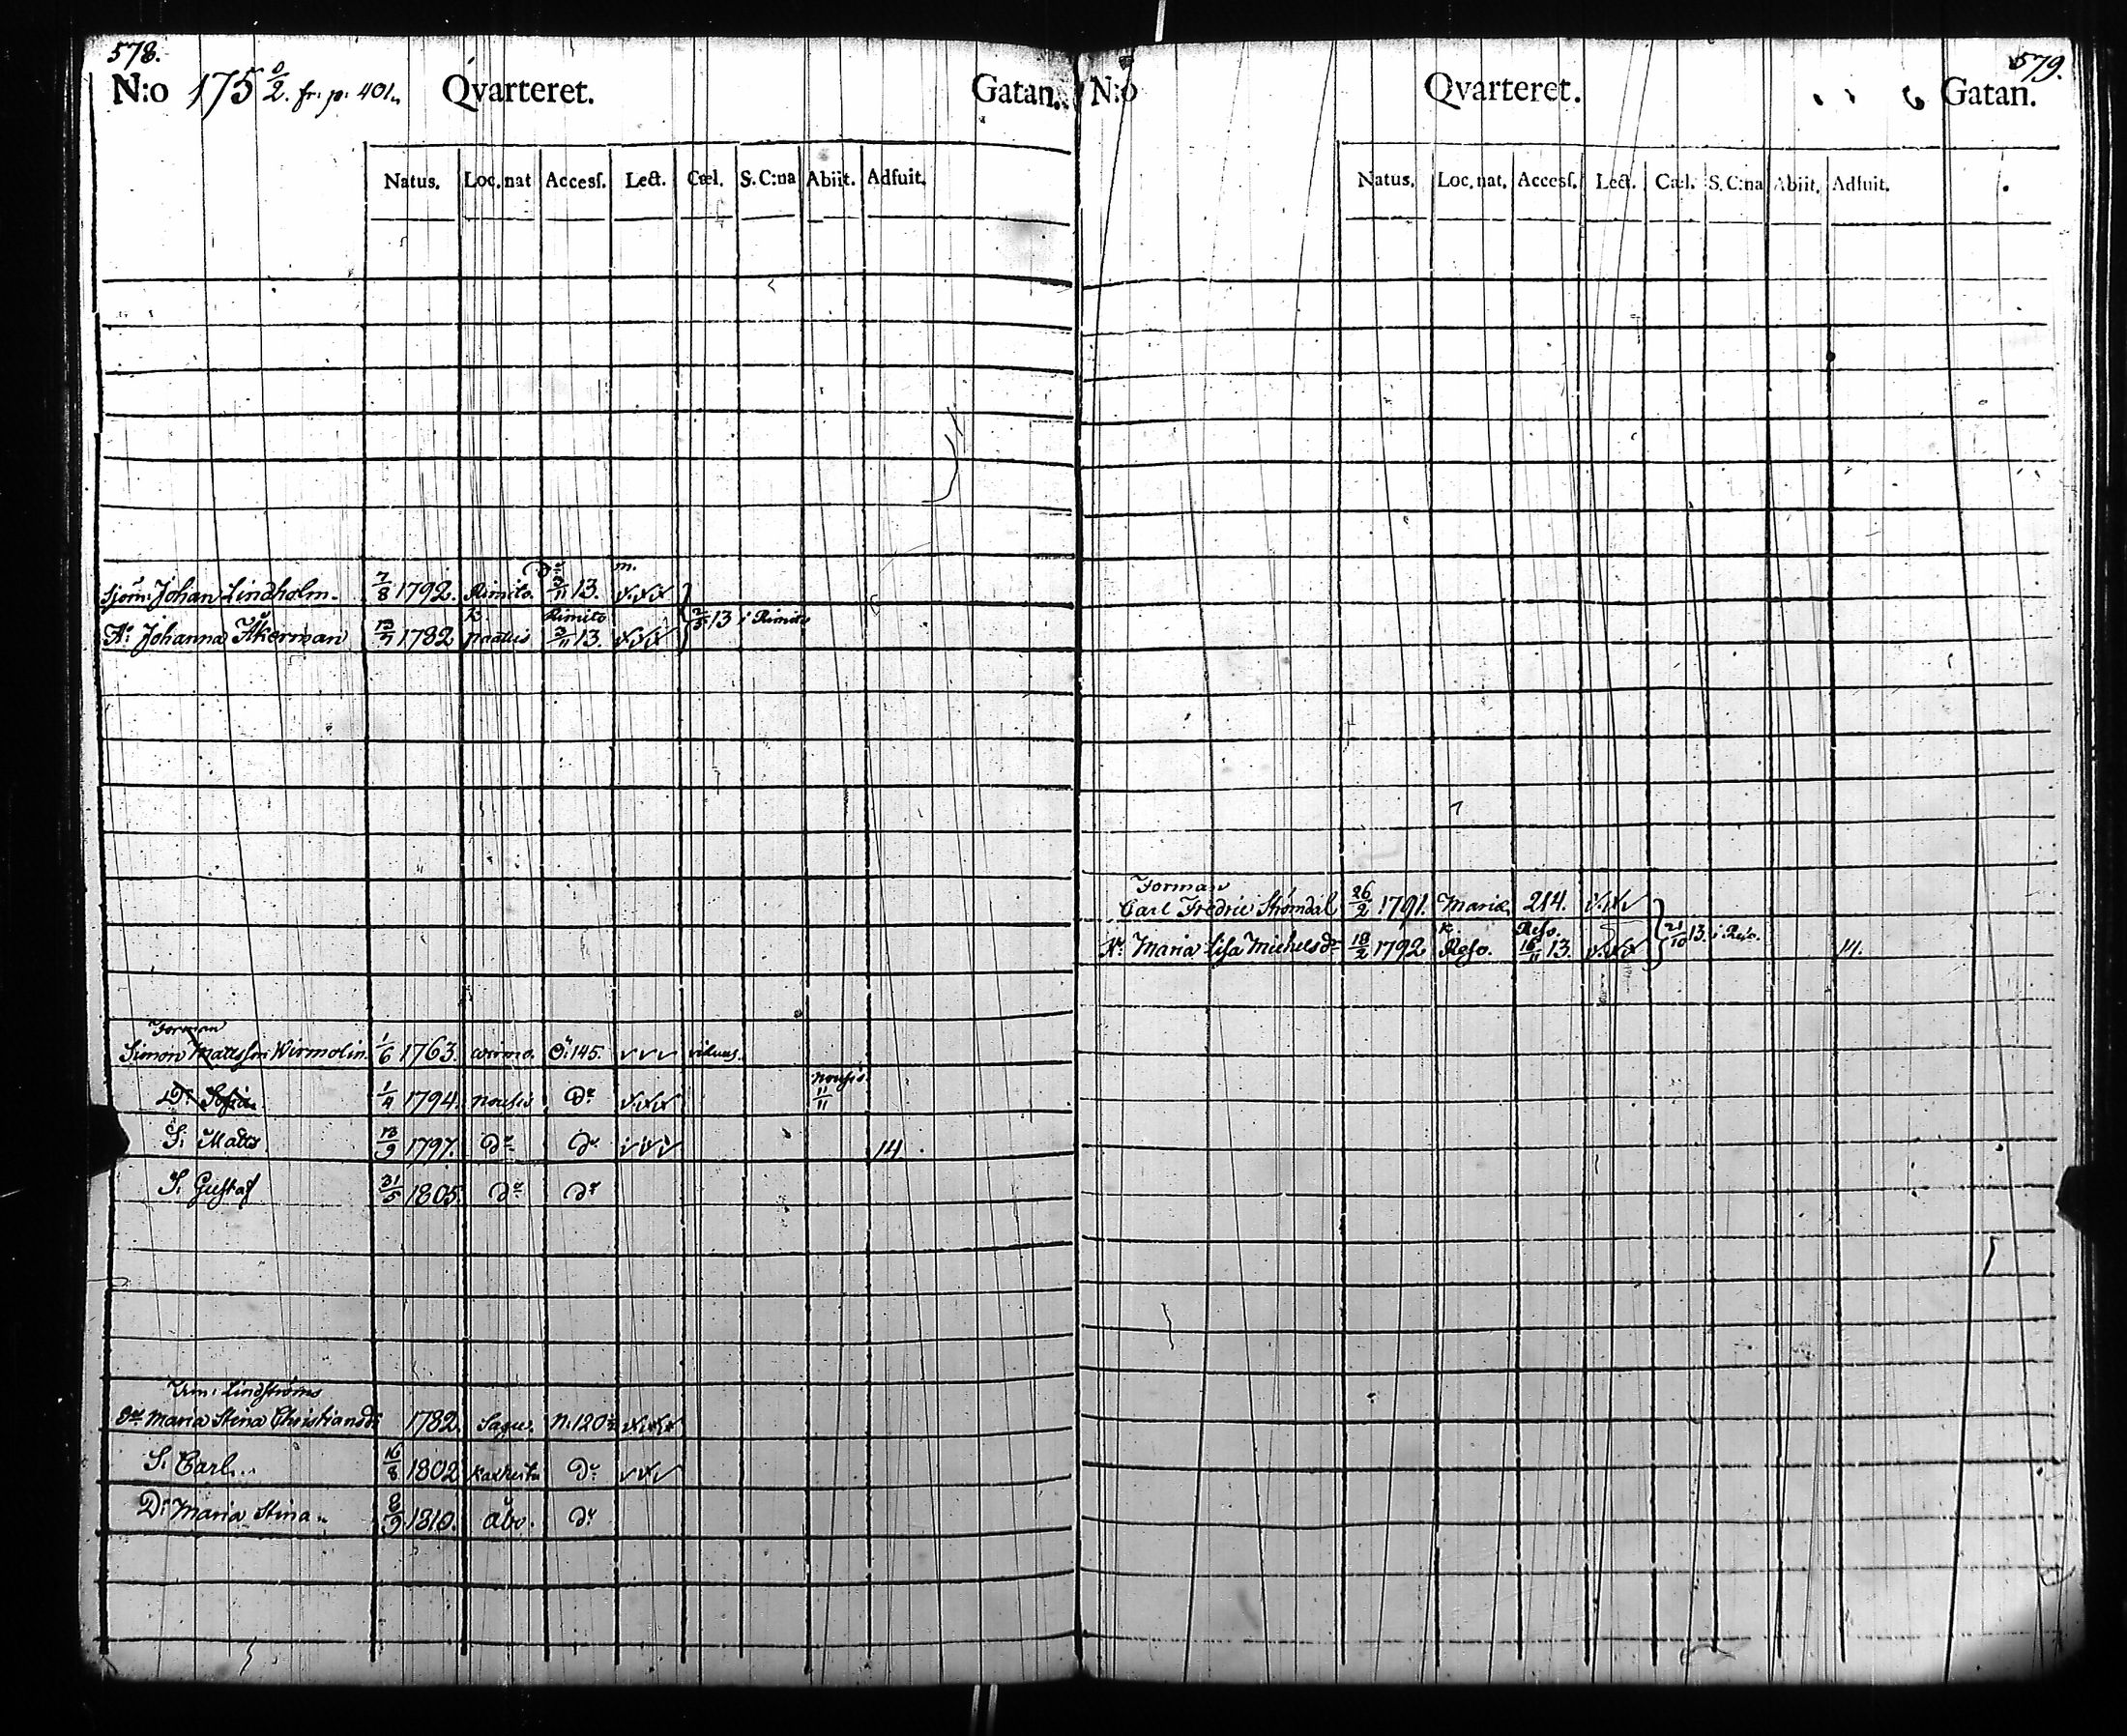 578.
N:o 175 0/2. fr. p. 401. Qvarteret. Gatan.
Natus. Loc. nat Accesſ. Lect. Cœl. S. C:na Abiit. Adfuit.
Dº m.
Sjöm: Johan Lindholm. 7/8 1792. Rimito. 3/11 13.
k Rimito 2/5 13 i Rimito
H: Johanna Åkerman 13/7 1782 3/11 13.
Forman
Simon Mattsson Wirmolin. 1/6 1763. 145.
Nousis
D: Sofia. 1/4 1794. Nousis Dº 11/11
S: Matts 13/9 1797. Dº Dº 14
S: Gustaf 31/5 1805. Dº Dº
Lindströms
Maria Stina Christiansdr 1782. Sagu. N:120
S: Carl. 16/8 1802 Dº
D: Maria Stina. 8/9 1810. Åbo. Dº
579.
N:o Qvarteret. Gatan.
Natus. Loc. nat. Accesſ. Lect. Cœl. S. C:na Abiit. Adfuit.
Forman
Carl Fredric Strömdal 26/2 1791. Mariæ 214.
k. Reso. 21/10 13. i Reso.
H: Maria Lisa Michelsdr 18/2 1792 Reso. 16/11 13. 14.